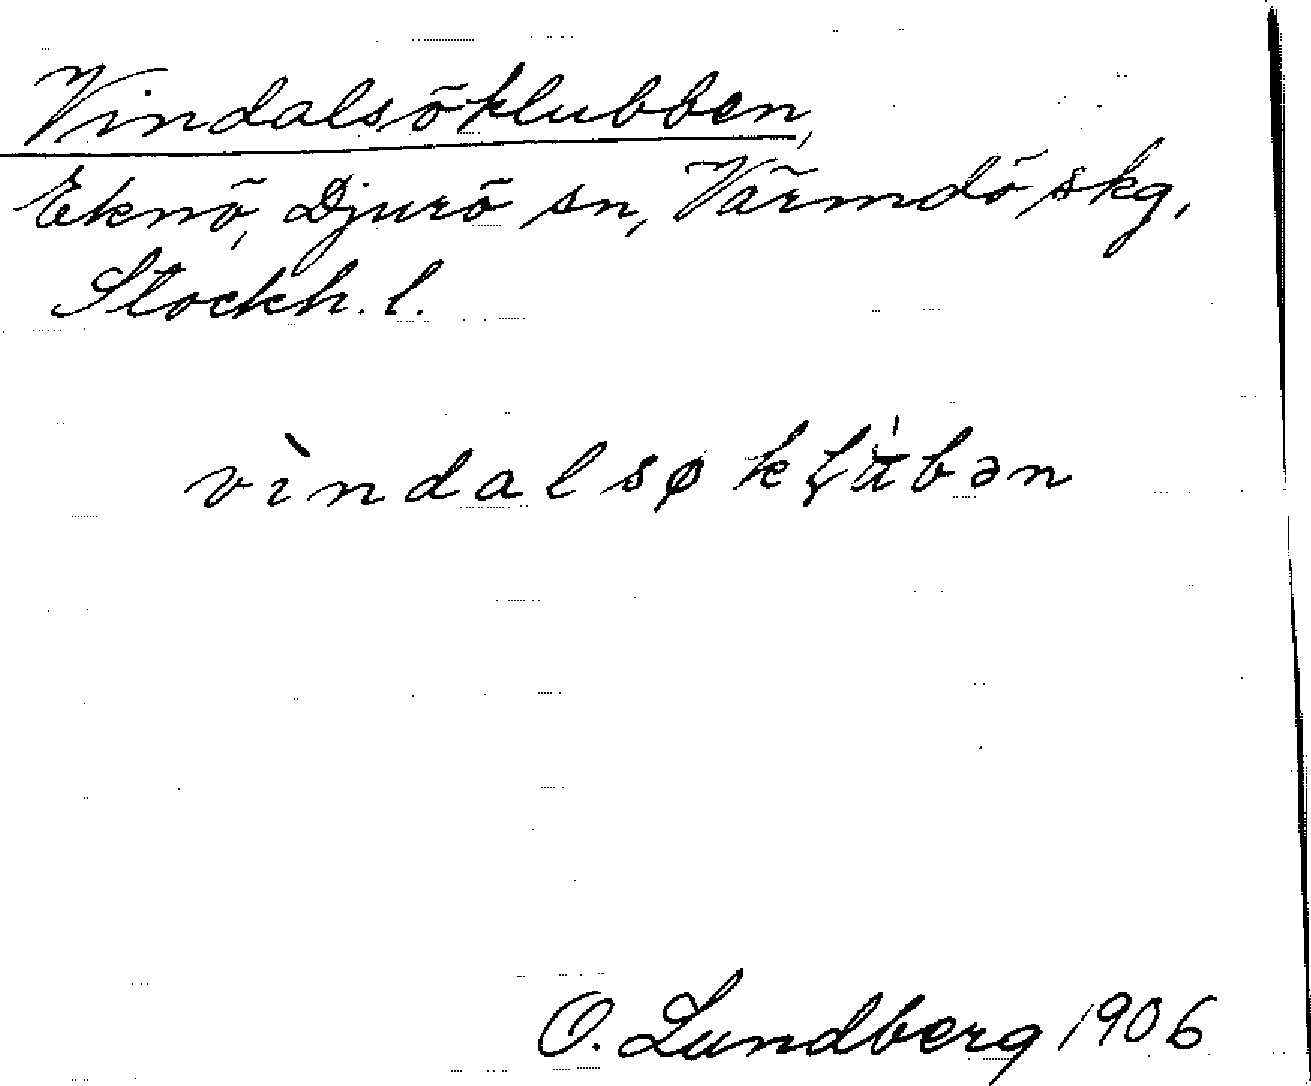 Vindalsöklubben,
Eknö, Djurö sn, Värmdö skg,
Stockh. l.
vìndalsøkļu̍bən
O. Lundberg 1906